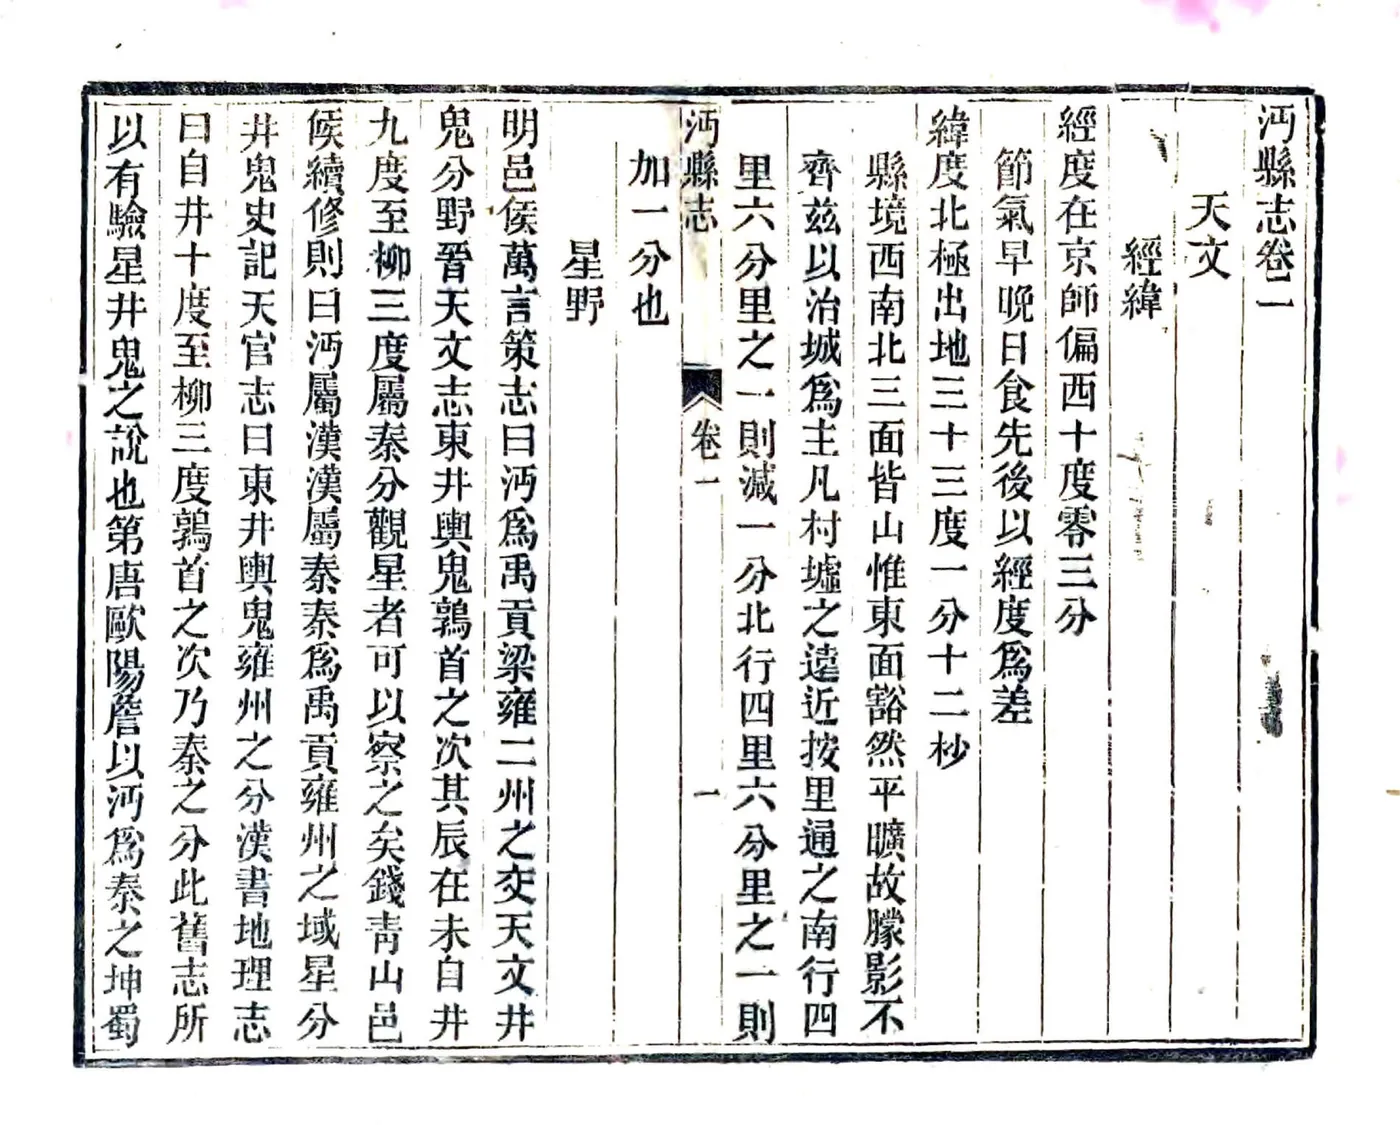 沔縣志卷一
天文
經緯
經度在京師偏西十度零三分
節氣早晚日食先後以經度爲差
緯度北極出地三十三度一分十二秒
縣境西南北三面皆山惟東面豁然平曠故朦影不
齊茲以治城爲主凡村墟之遠近按里通之南行四
里六分里之一則減一分北行四里六分里之一則
沔縣志
卷一
一
加一分也
星野
明邑侯萬言策志曰沔爲禹貢梁雍二州之交天文井
鬼分野晉天文志東井輿鬼鶉首之次其辰在未自井
九度至柳三度屬秦分觀星者可以察之矣錢青山邑
侯續修則曰沔屬漢漢屬秦秦爲禹貢雍州之域星分
井鬼史記天官志曰東井輿鬼雍州之分漢書地理志
曰自井十度至柳三度鶉首之次乃秦之分此舊志所
以有驗星井鬼之說也第唐歐陽詹以沔爲秦之坤蜀